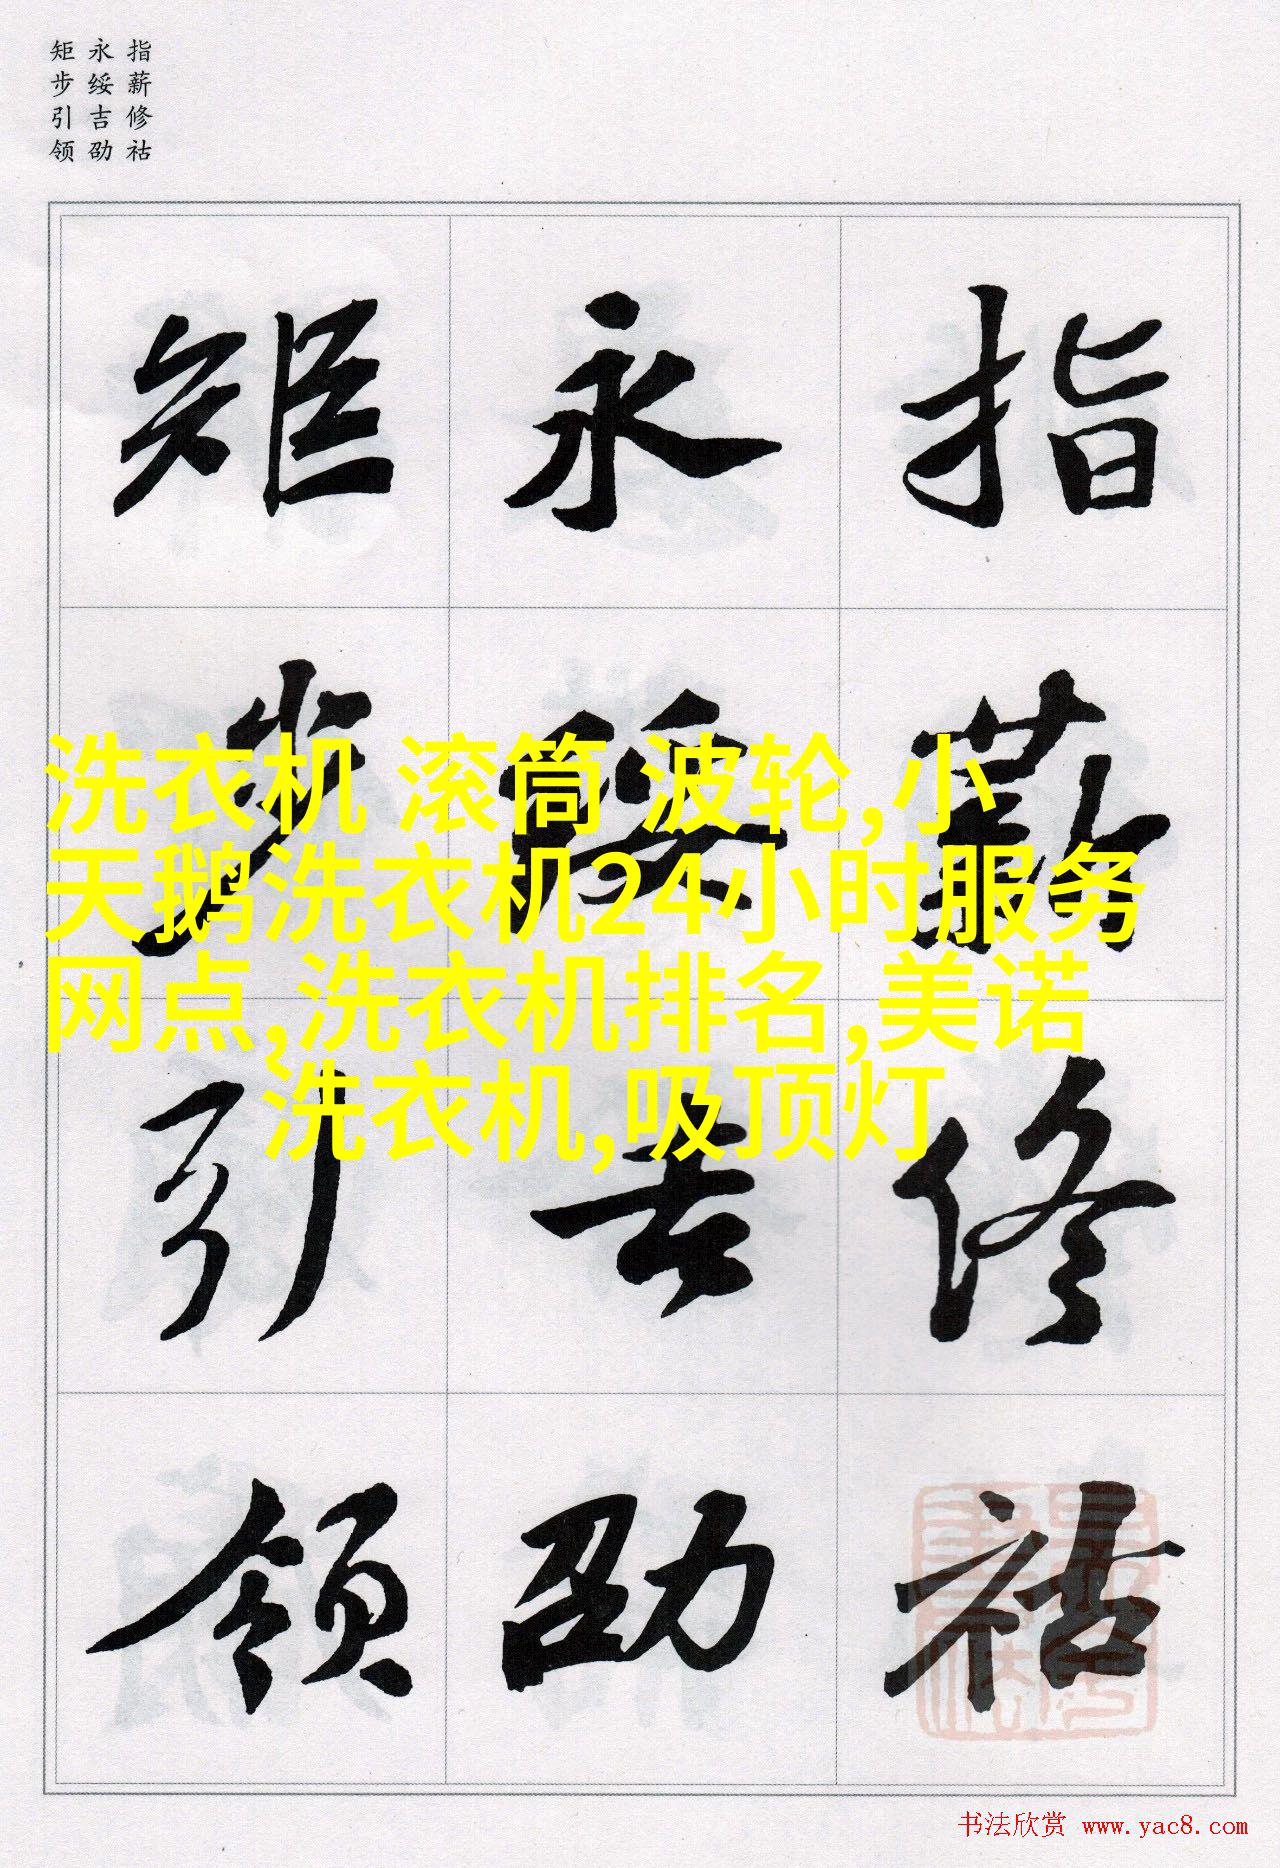 指薪修祜
永绥吉劭
矩步引领
指薪修祜
永绥吉劭
矩步引领
洗衣机 滚筒 波轮,小
天鹅洗衣机24小时服务
网点,洗衣机排名,美诺
洗衣机,吸顶灯
书法欣赏 www.yac8.com